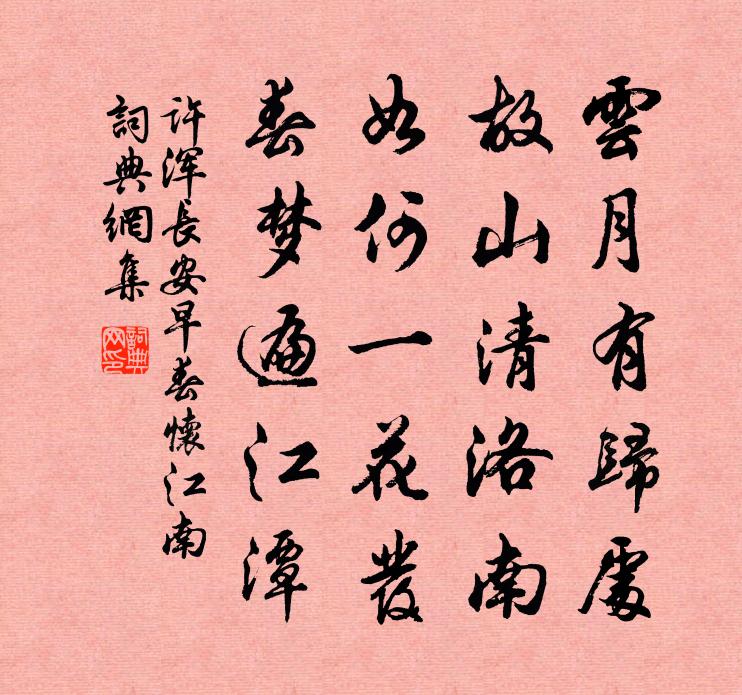 雲月有歸處
故山清洛南
如何一花發
春梦遍江潭
许浑長安早春懷江南
詞典網集
詞典网印